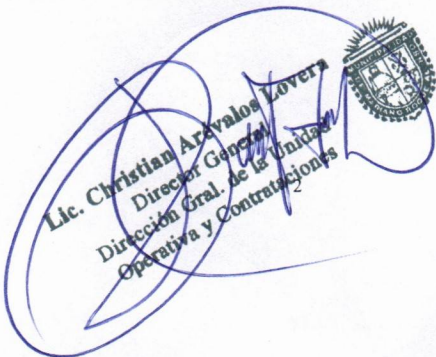 Lic. Christian Arévalos Lovera
Director General
Dirección Gral. de la Unidad
Operativa y Contrataciones
2